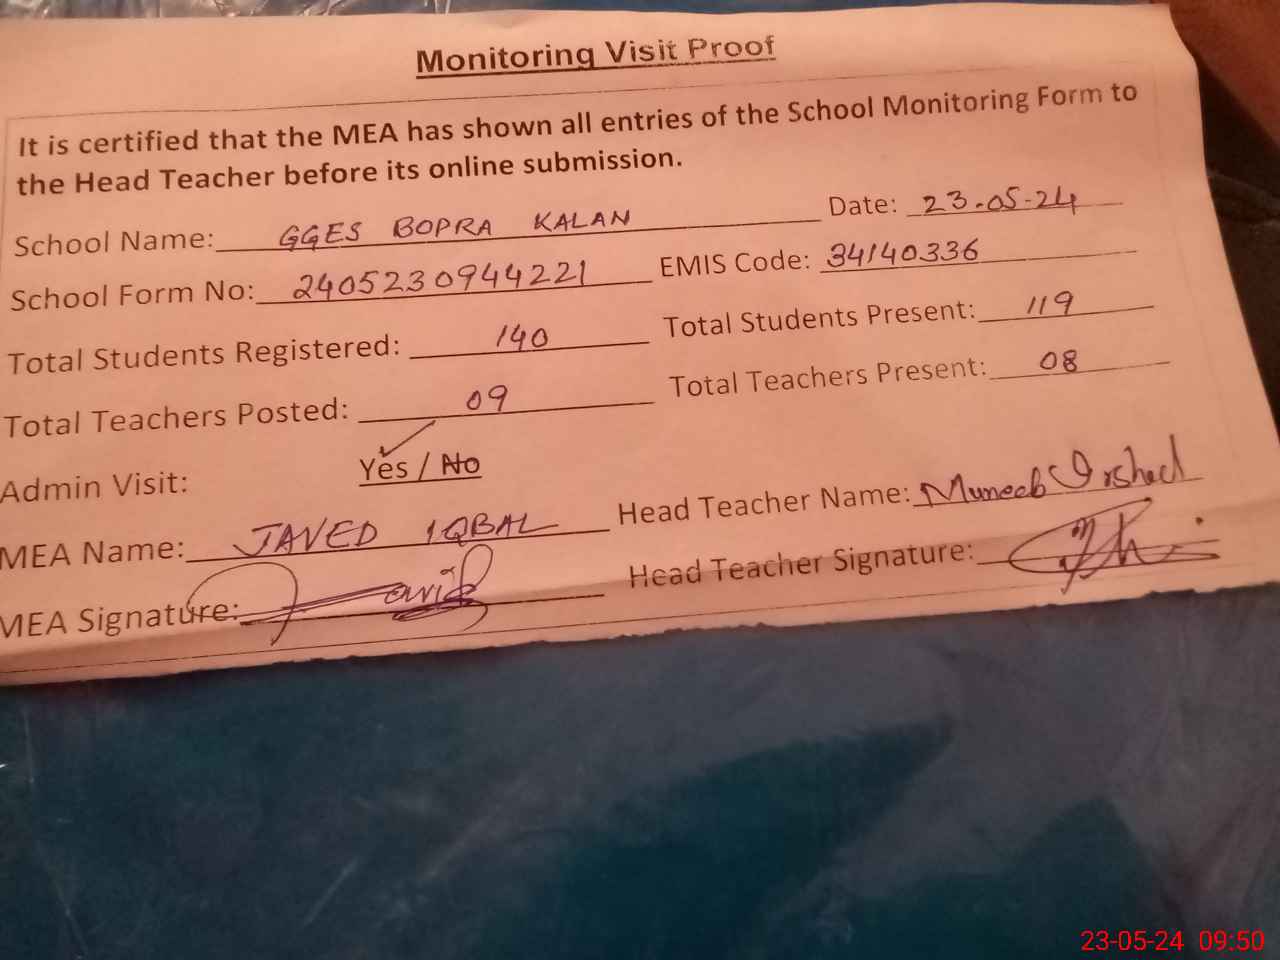 Monitoring Visit Proof
It is certified that the MEA has shown all entries of the School Monitoring Form to
the Head Teacher before its online submission.
School Name: GGES BOPRA KALAN Date: 23-05-24
School Form No: 2405230944221 EMIS Code: 34140336
Total Students Registered: 140 Total Students Present: 119
Total Teachers Posted: 09 Total Teachers Present: 08
Admin Visit: Yes / No
MEA Name: JAVED IQBAL Head Teacher Name: Muneeb Irshad
MEA Signature: Head Teacher Signature:
23-05-24 09:50